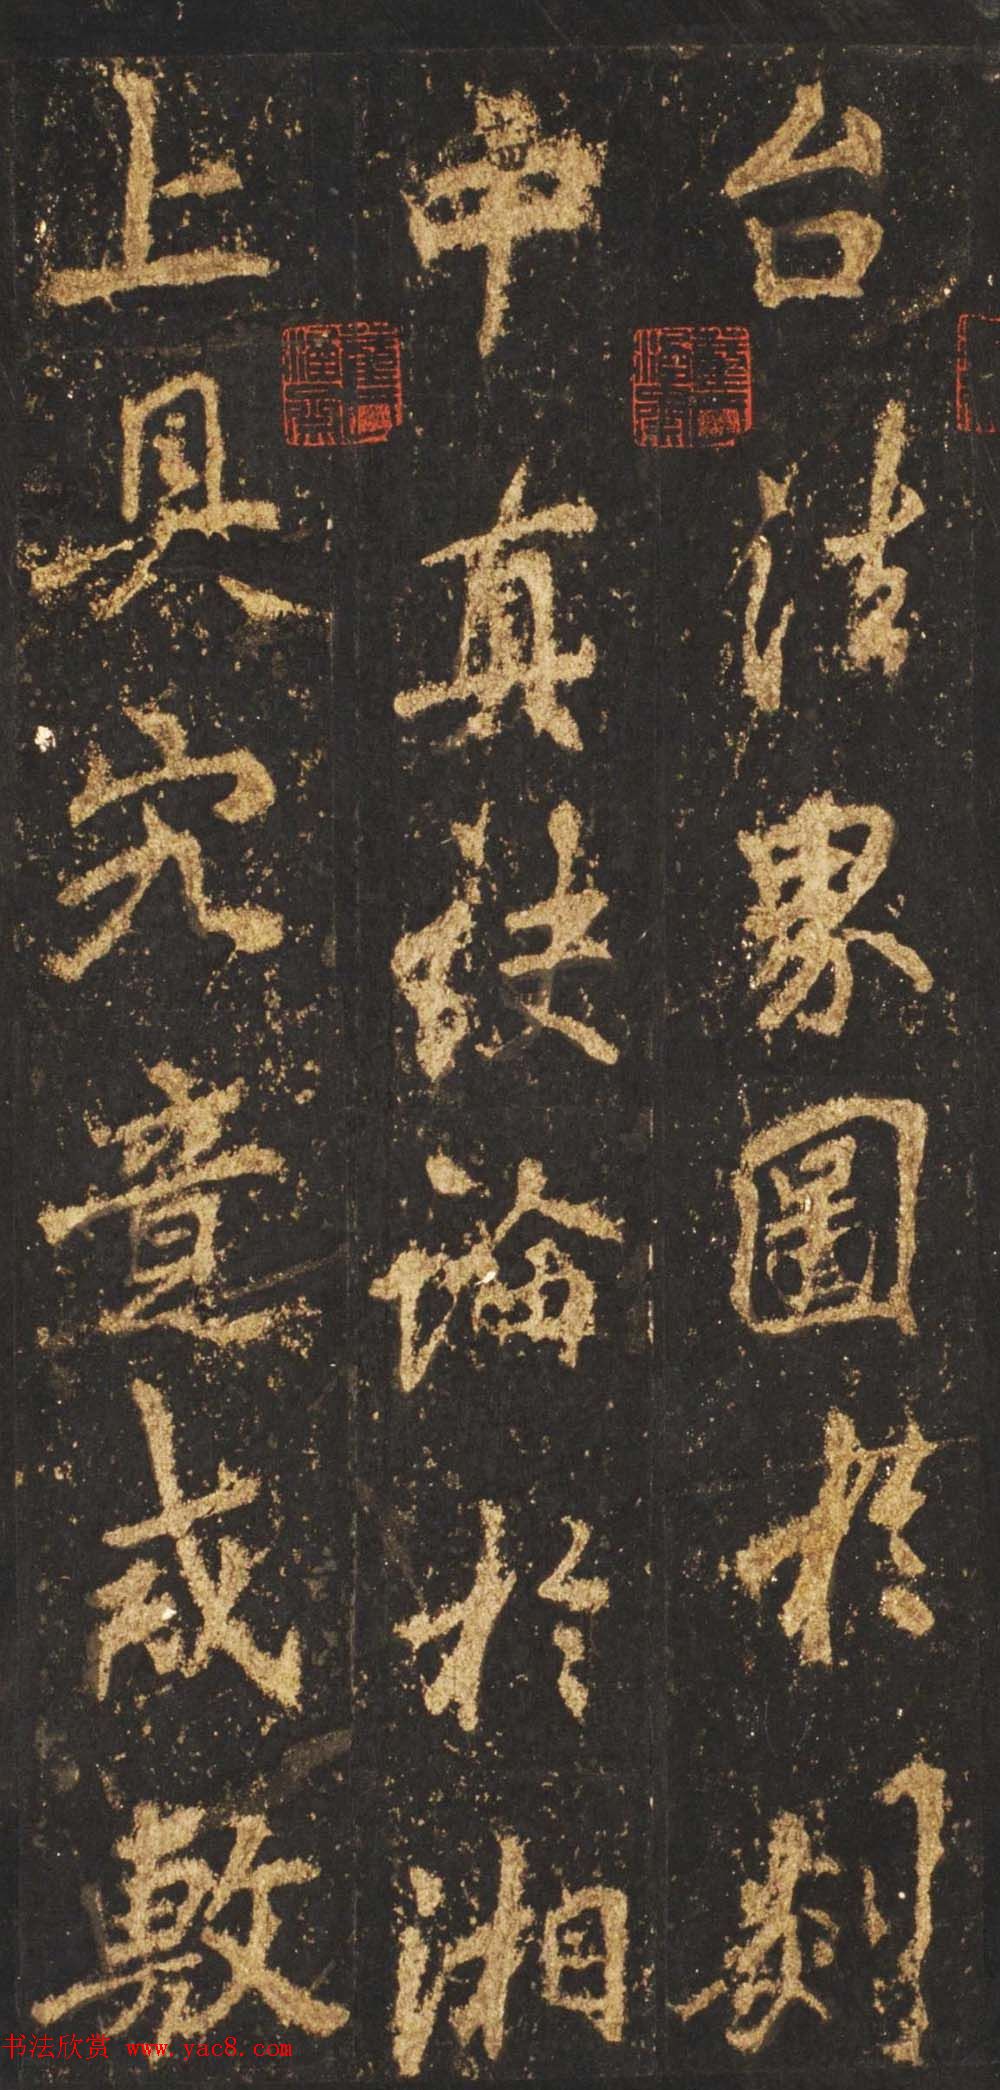 台法界圖於刹
中真經論於湘
上具究竟戒敷
书法欣赏 www.yac8.com